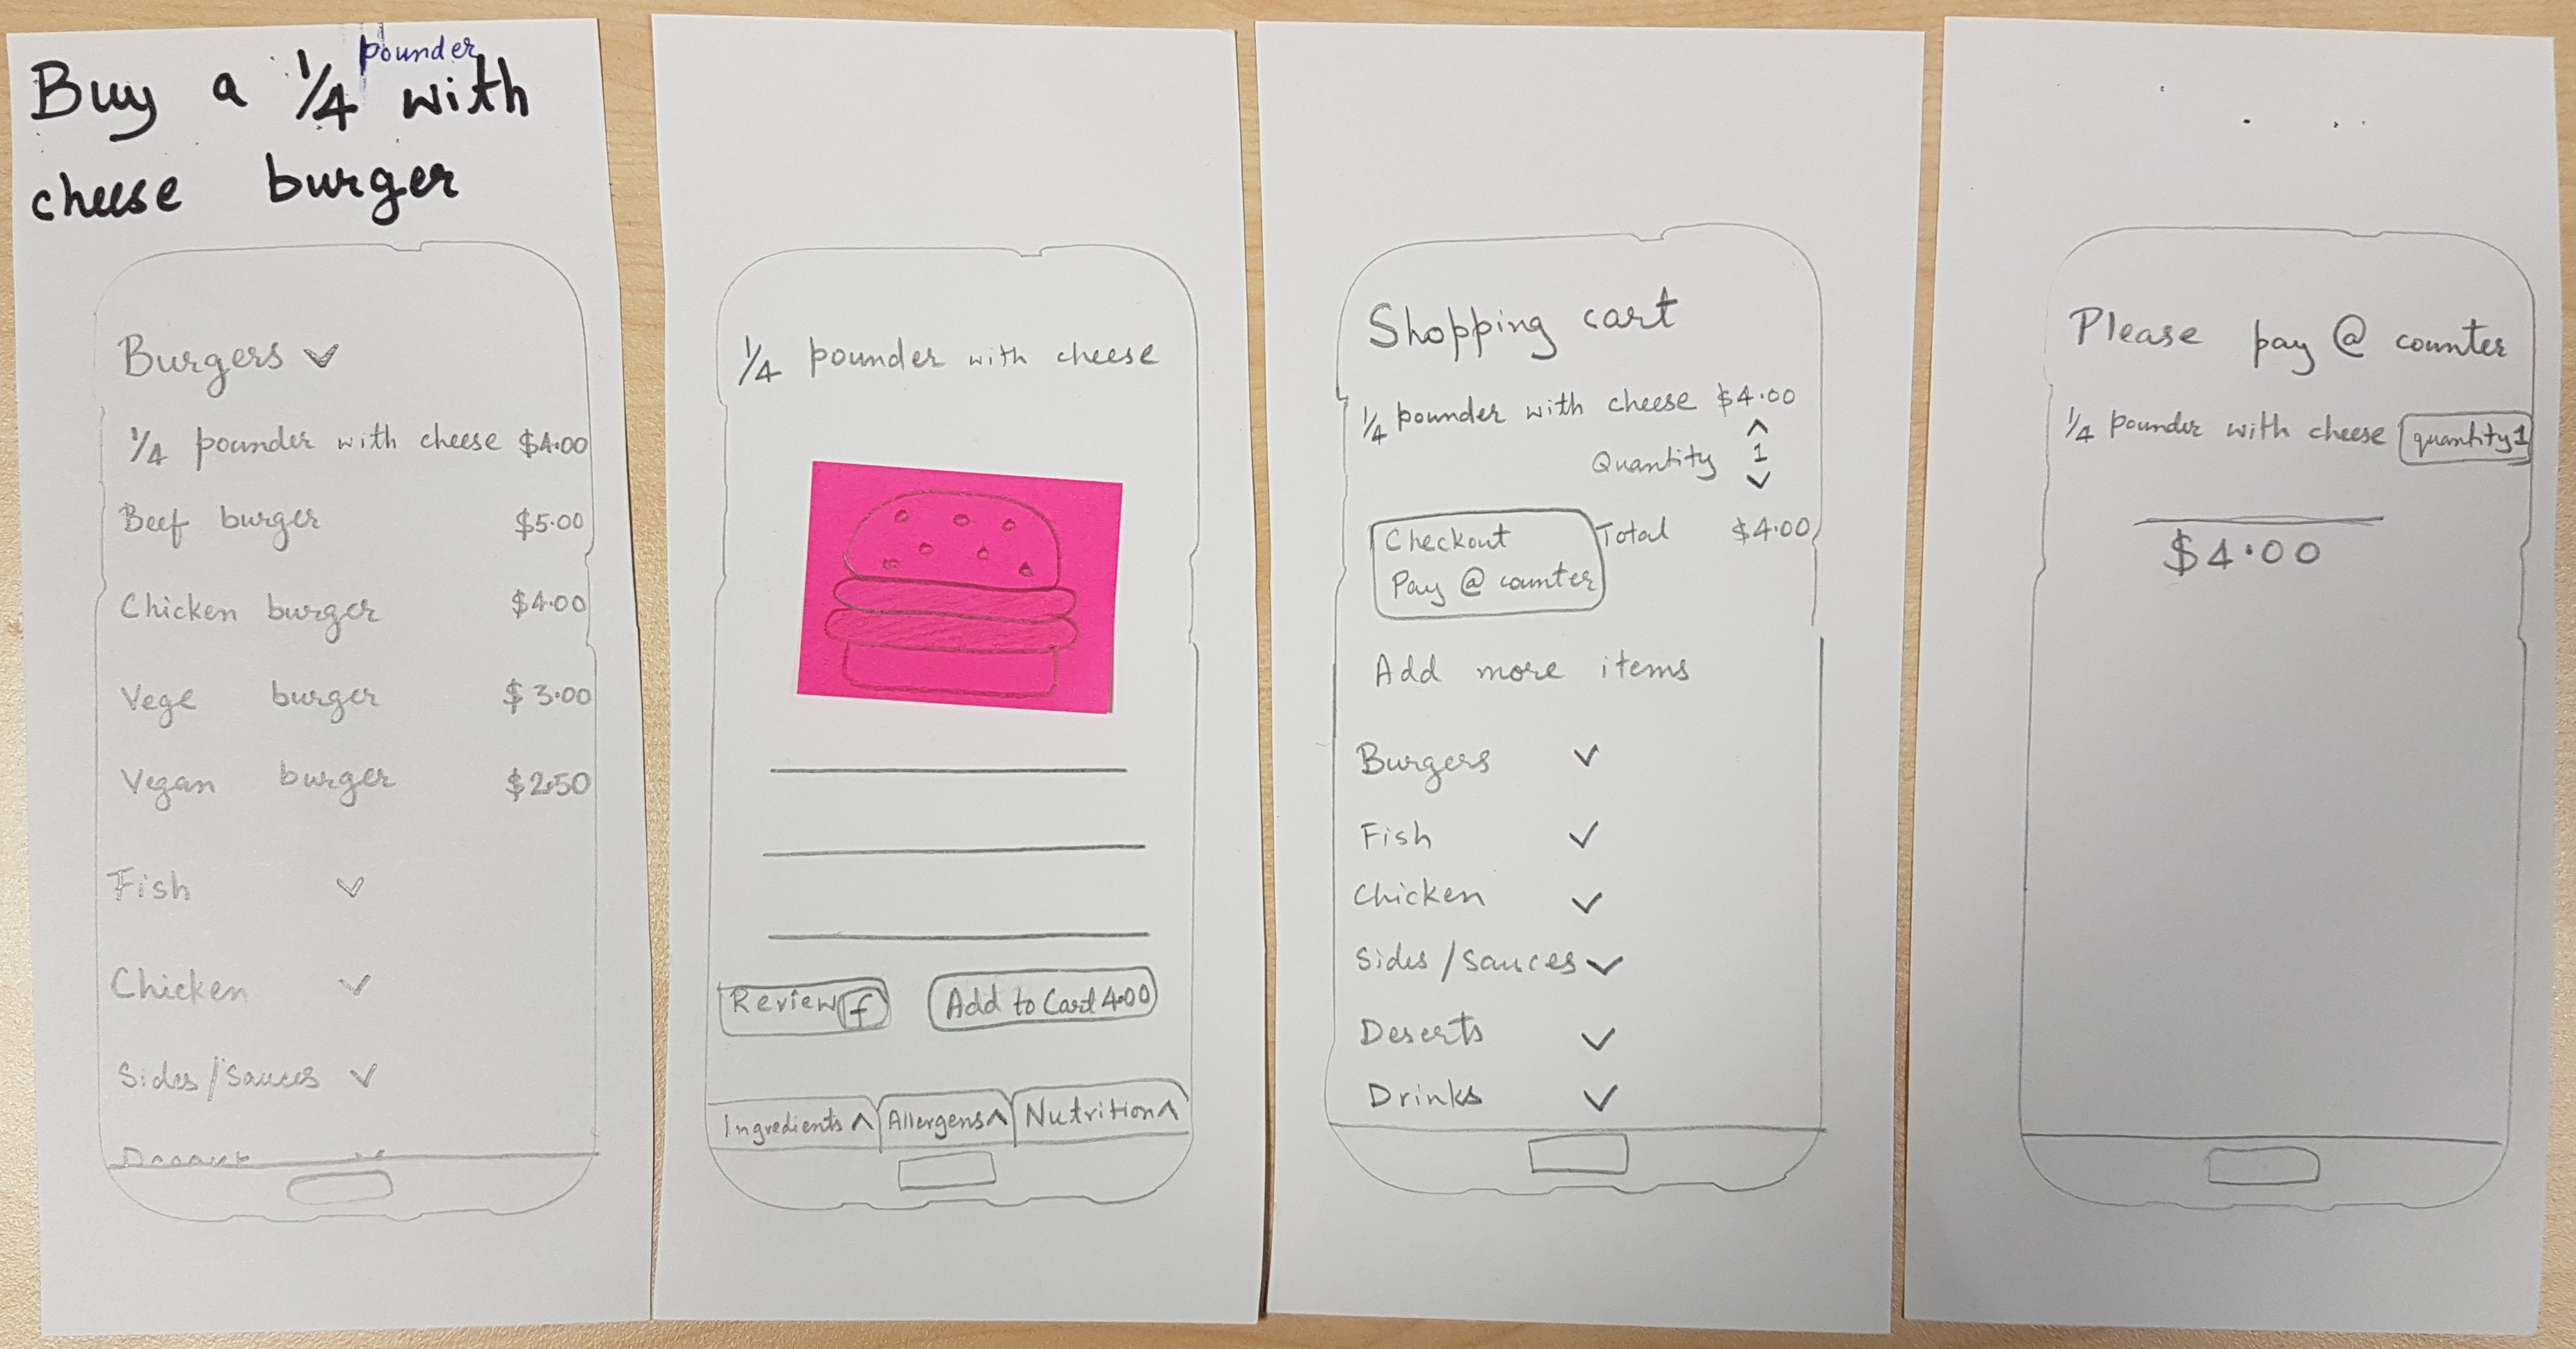 Buy a 1/4 pounder with
cheese burger
Burgers
1/4 pounder with cheese $4.00
Beef burger $5.00
Chicken burger $4.00
Vege burger $3.00
Vegan burger $2.50
Fish
Chicken
Sides/Sauces
1/4 pounder with cheese
Review f
Add to Cart 4.00
Ingredients
Allergens
Nutrition
Shopping cart
1/4 pounder with cheese $4.00
Quantity 1
Checkout
Pay @ counter
Total $4.00
Add more items
Burgers
Fish
Chicken
Sides/Sauces
Deserts
Drinks
Please pay @ counter
1/4 pounder with cheese quantity 1
$4.00